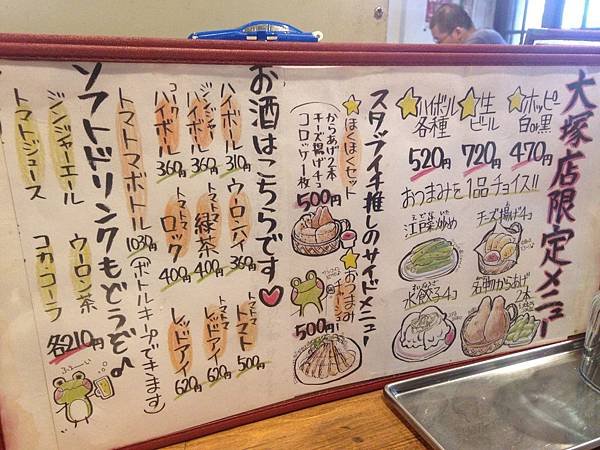 大塚店限定メニュー
☆ホッピー
白or黒
470円
☆生
ビール
720円
☆ハイボール
各種
520円
おつまみを1品チョイス!!
チーズ揚げ4コ
江戸菜炒め
名物からあげ
2本
水餃子4コ
スタッフイチ推しのサイドメニュー
☆ほくほくセット
からあげ2本
チーズ揚げ4コ
コロッケ一枚
500円
☆おつまみ
500円
お酒はこちらです♡
ハイボール
310円
ジンジャー
ハイボール
360円
コーク
ハイボール
360円
ウーロンハイ
360円
トマト
緑茶
400円
トマト
ロック
400円
トマト
トマト
500円
トマト
レッドアイ
620円
レッドアイ
620円
トマトマボトル
1030円
(ボトルキープできます)
ソフトドリンクもどうぞ♪
ジンジャーエール
トマトジュース
ウーロン茶
コカ・コーラ
各210円